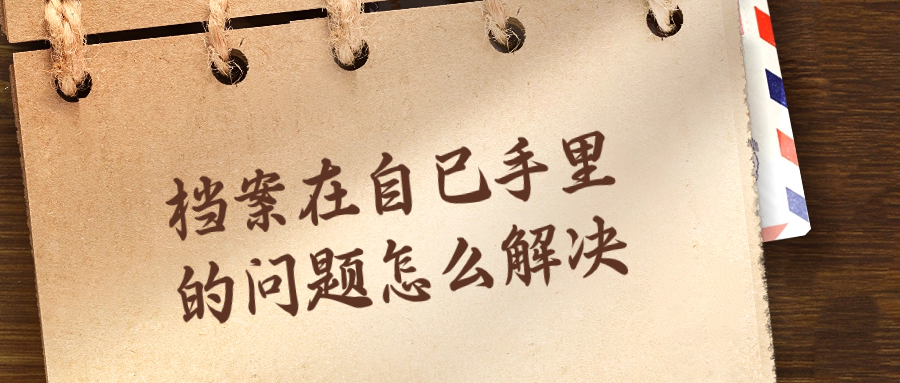 档案在自己手里
的问题怎么解决